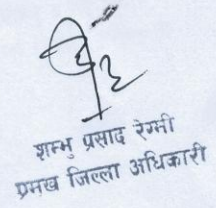 शम्भु प्रसाद रेग्मी
प्रमुख जिल्ला अधिकारी